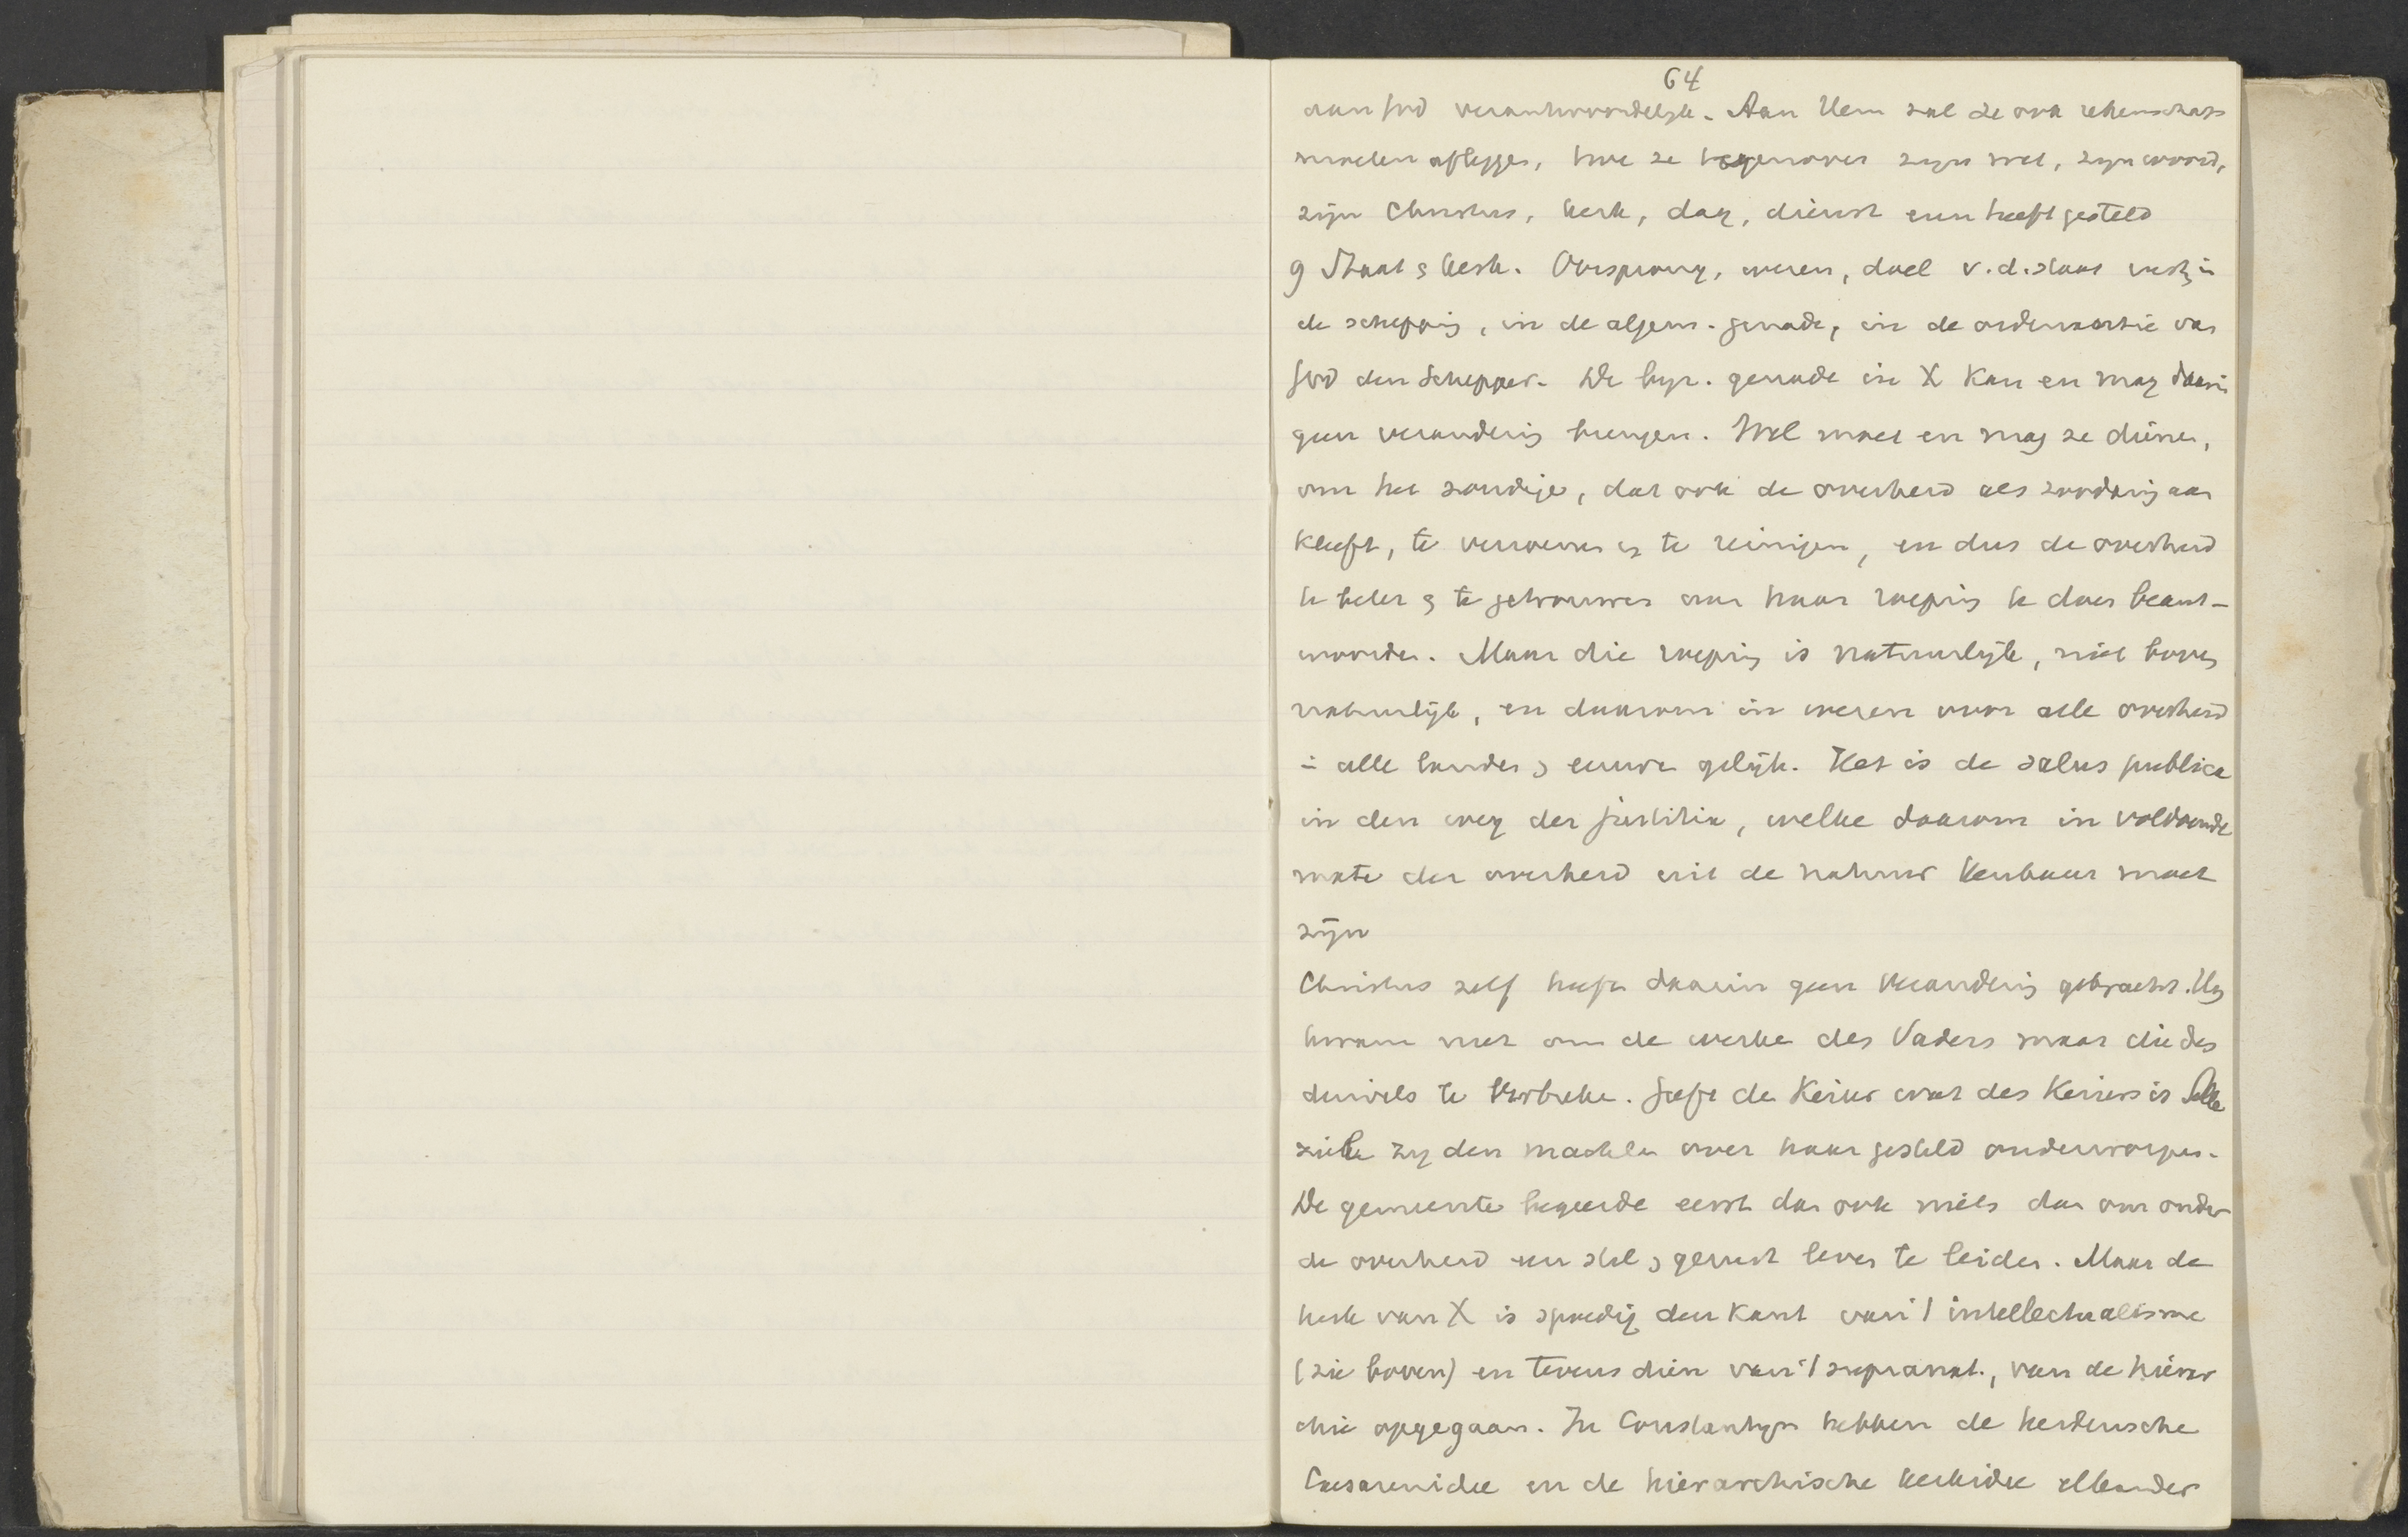 64
aan God verantwoordelijk. Aan Hem zal ze ook rekenschap
moeten afleggen, hoe ze tegenover zijn wet, zijn woord,
zijn Christus, kerk, dag, dienst enz heeft gesteld
9 Staat & kerk. Oorsprong, wezen, doel v.d. staat rust in
de schepping, in de algem. genade, in de ordinantie van
God den Schepper. De byz. genade in X kan en mag daarin
geen verandering brengen. Wel moet en mag ze dienen,
om het zondige, dat ook de overheid als zoodanig aan
kleeft, te verzoenen en te reinigen, en dus de overheid
te beter & te getrouwer aan haar roeping te doen beant-
woorden. Maar die roeping is natuurlijk, niet boven
natuurlijk, en daarom in wezen voor alle overheid
in alle landen & eeuwen gelijk. Het is de salus publica
in den weg der justitia, welke daarom in voldoende
mate der overheid uit de natuur kenbaar moet
zijn
Christus zelf heeft daarin geen verandering gebracht. Hij
kwam niet om de werken des Vaders maar die des
duivels te verbreken. Geeft den Keizer wat des Keizers is Alle
ziele zij den machten over haar gesteld onderworpen.
De gemeente begeerde eerst dan ook niets dan om onder
de overheid een stil & gerust leven te leiden. Maar de
kerk van X is spoedig den kant van 't intellectualisme
(zie boven) en tevens dien van 't supranat., van de hierar
chie opgegaan. In Constantijn hebben de heidensche
Caesarenidee en de hierarchische kerkidee elkander